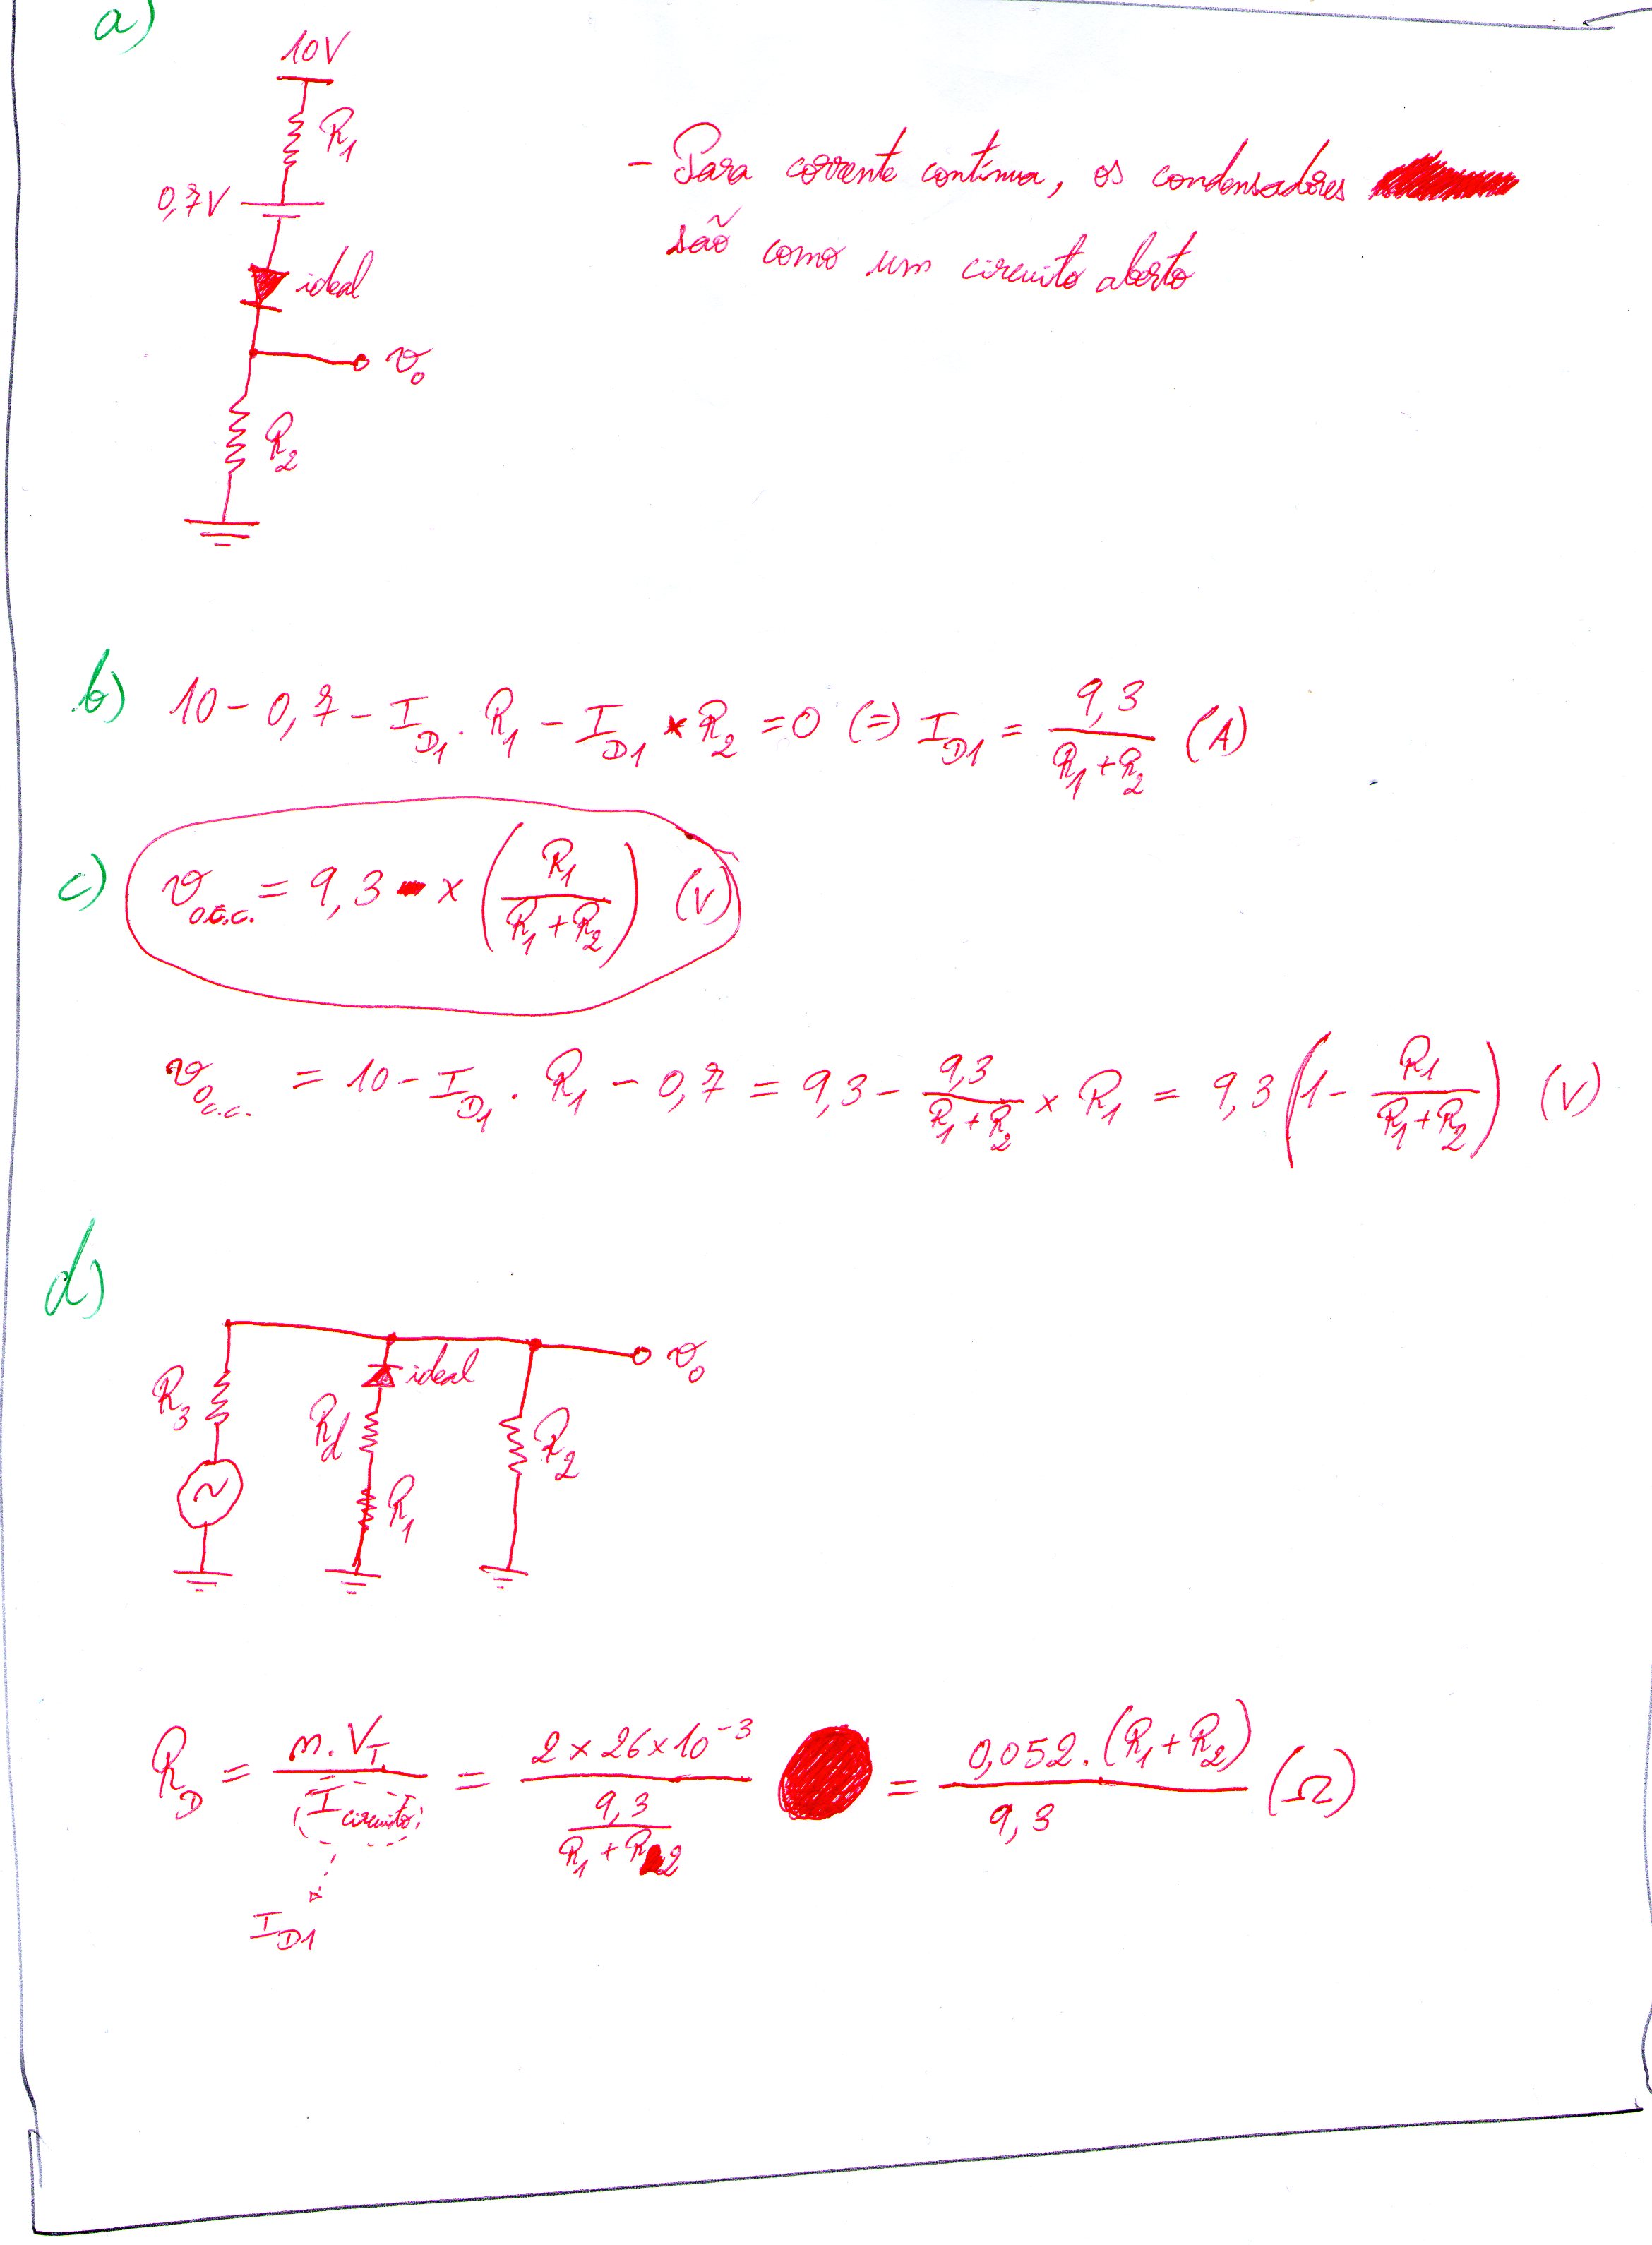 a)
10V
R₁
0,7V
ideal
v₀
R₂
- Para corrente contínua, os condensadores
são como um circuito aberto
b) 10 - 0,7 - I_D1 . R₁ - I_D1 × R₂ = 0 (=) I_D1 = 9,3 / (R₁ + R₂) (A)
c) v_o c.c. = 9,3 × (R₁ / (R₁ + R₂)) (V)
v_o c.c. = 10 - I_D1 . R₁ - 0,7 = 9,3 - 9,3 / (R₁ + R₂) × R₁ = 9,3 (1 - R₁ / (R₁ + R₂)) (V)
d)
ideal
v₀
R₃
R_d
R₂
R₁
R_D = n . V_T / I circuito = 2 × 26 × 10⁻³ / (9,3 / (R₁ + R₂)) = 0,052 . (R₁ + R₂) / 9,3 (Ω)
I_D1